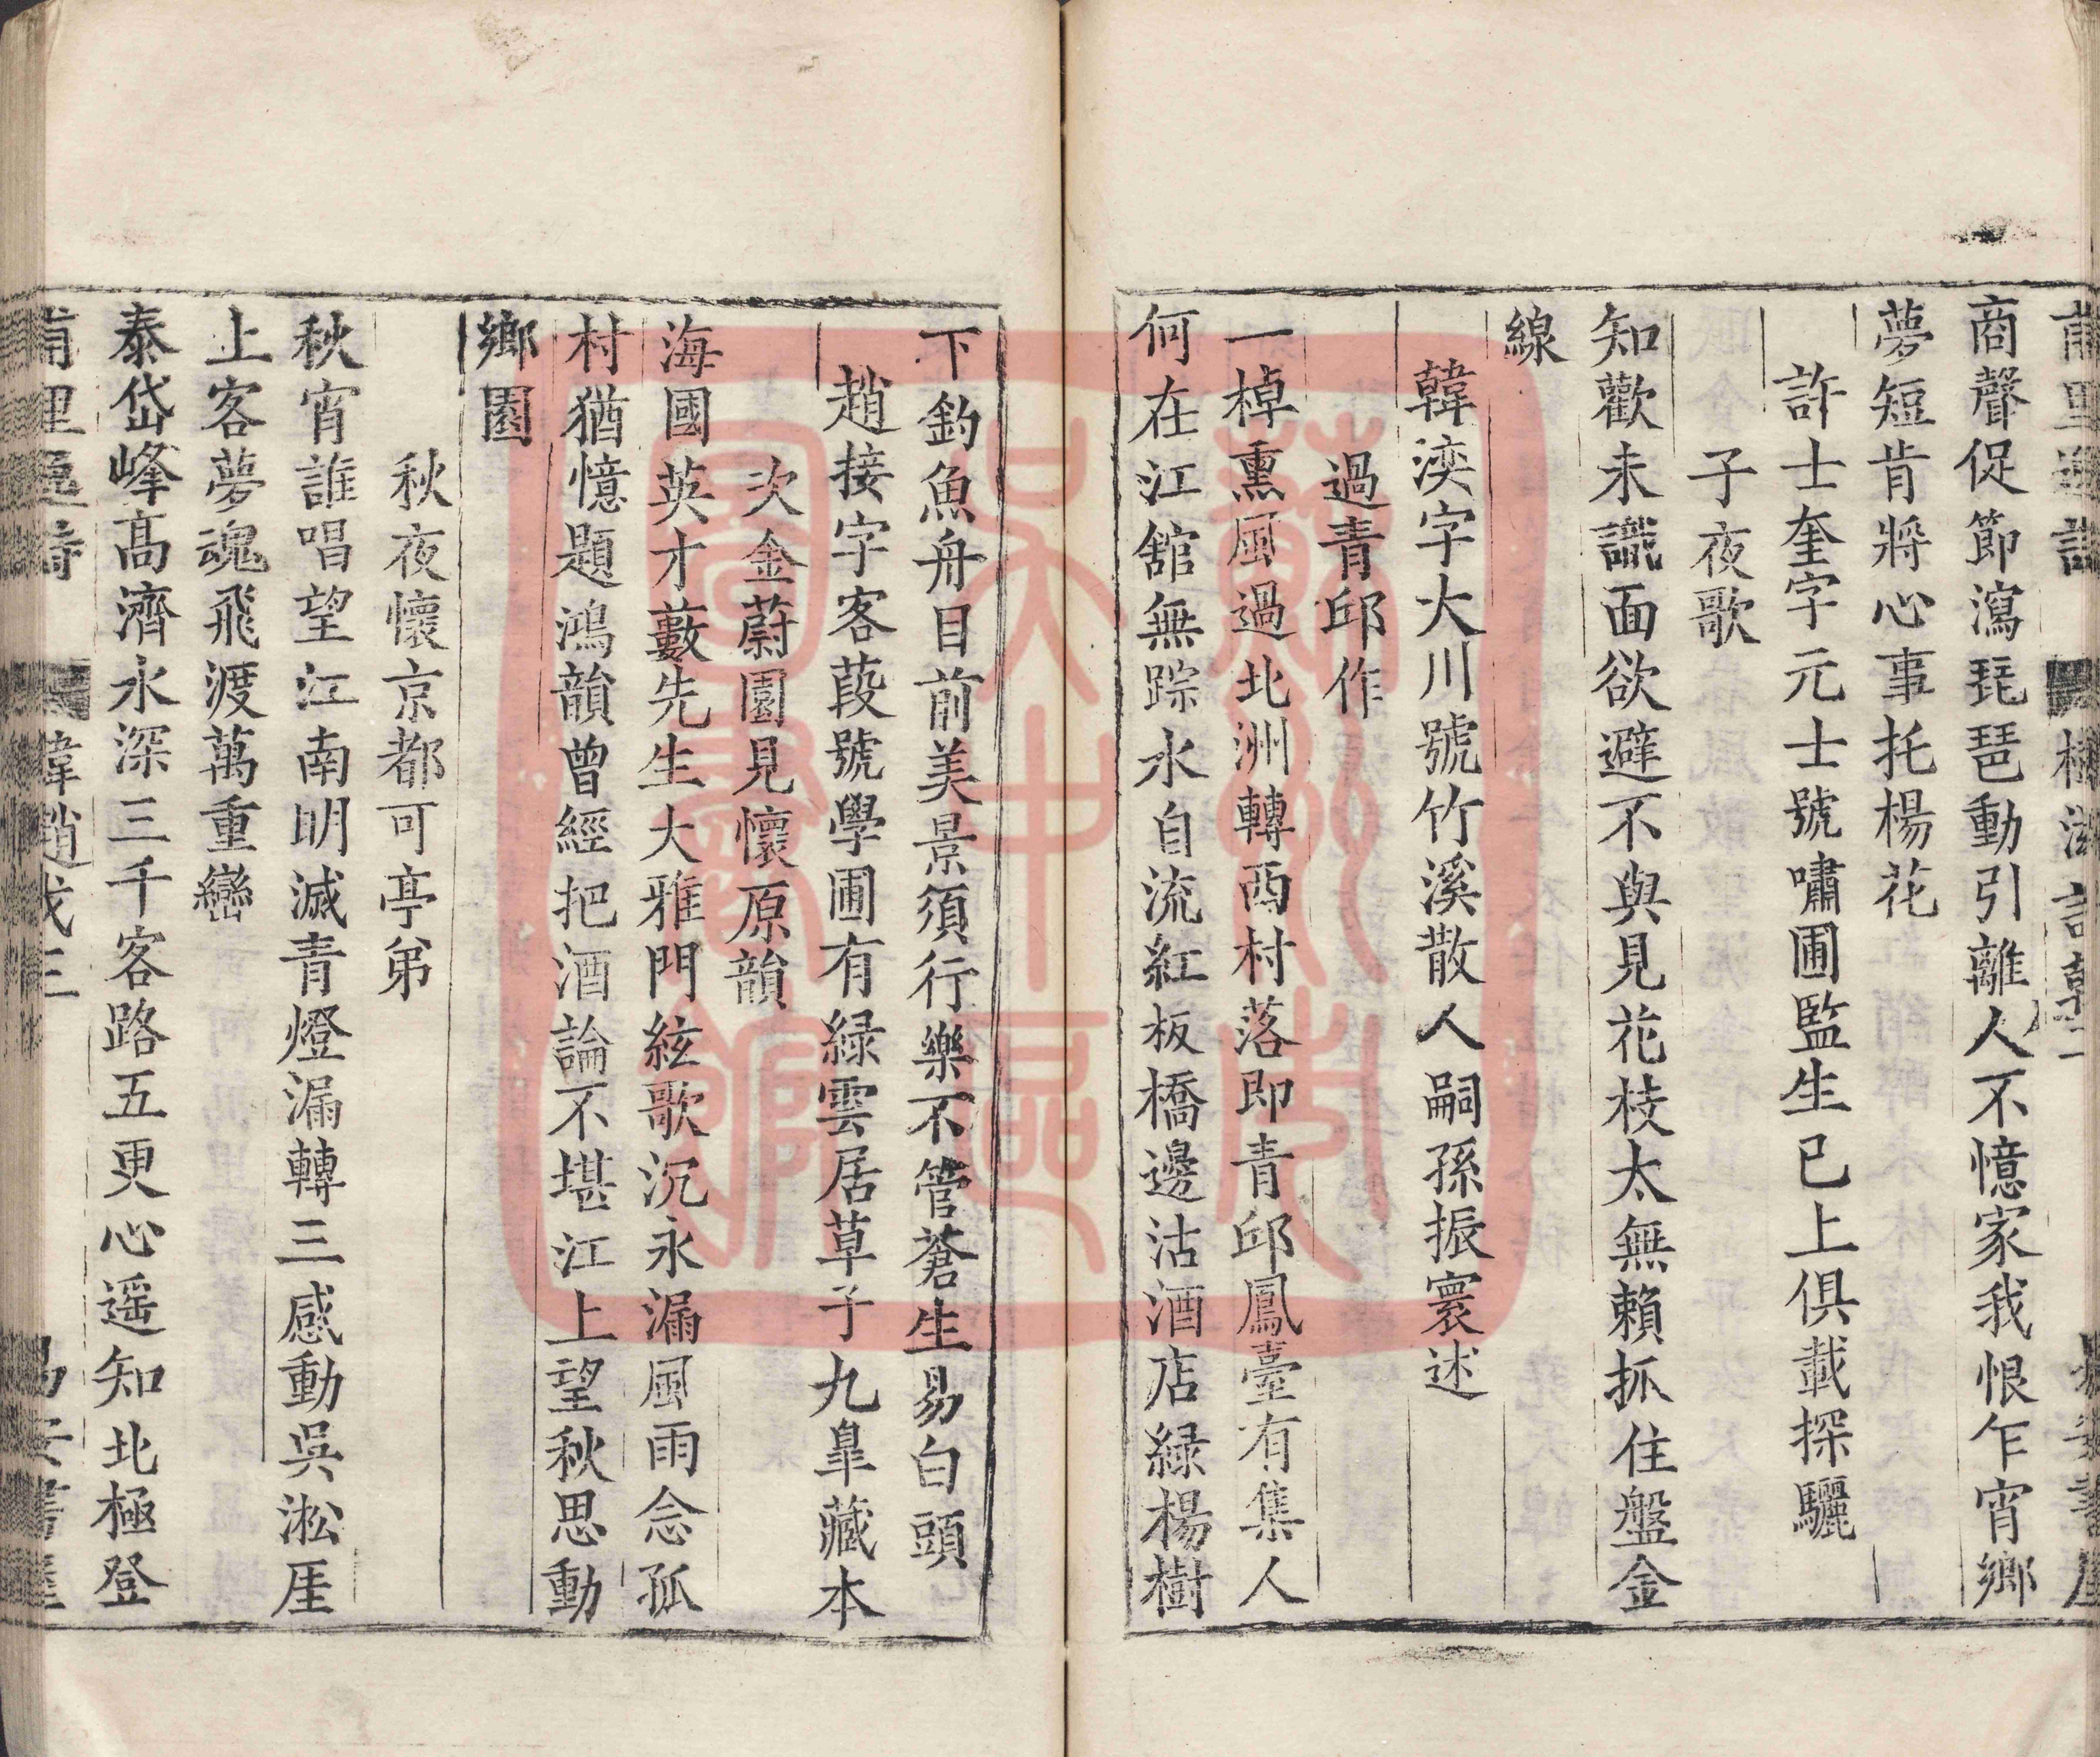 商聲促節瀉琵琶動引離人不憶家我恨乍宵鄉
夢短肯將心事托楊花
許士奎字元士號嘯圃監生已上俱載探驪
子夜歌
知歡未識面欲避不與見花枝太無賴抓住盤金
線
韓湙字大川號竹溪散人嗣孫振寰述
過青邱作
一棹熏風過北洲轉西村落即青邱鳳臺有集人
何在江舘無踪水自流紅板橋邊沽酒店綠楊樹
下釣魚舟目前美景須行樂不管蒼生易白頭
趙接字客葭號學圃有綠雲居草子九臯藏本
次金蔚園見懷原韻
海國英才藪先生大雅門絃歌沉永漏風雨念孤
村猶憶題鴻韻曾經把酒論不堪江上望秋思動
鄉園
秋夜懷京都可亭弟
秋宵誰唱望江南明滅青燈漏轉三感動吳淞厓
上客夢魂飛渡萬重巒
泰岱峰高濟水深三千客路五更心遥知北極登
甫里逸詩 韓趙戈三 易安書屋
蘇州市吳中區圖書館